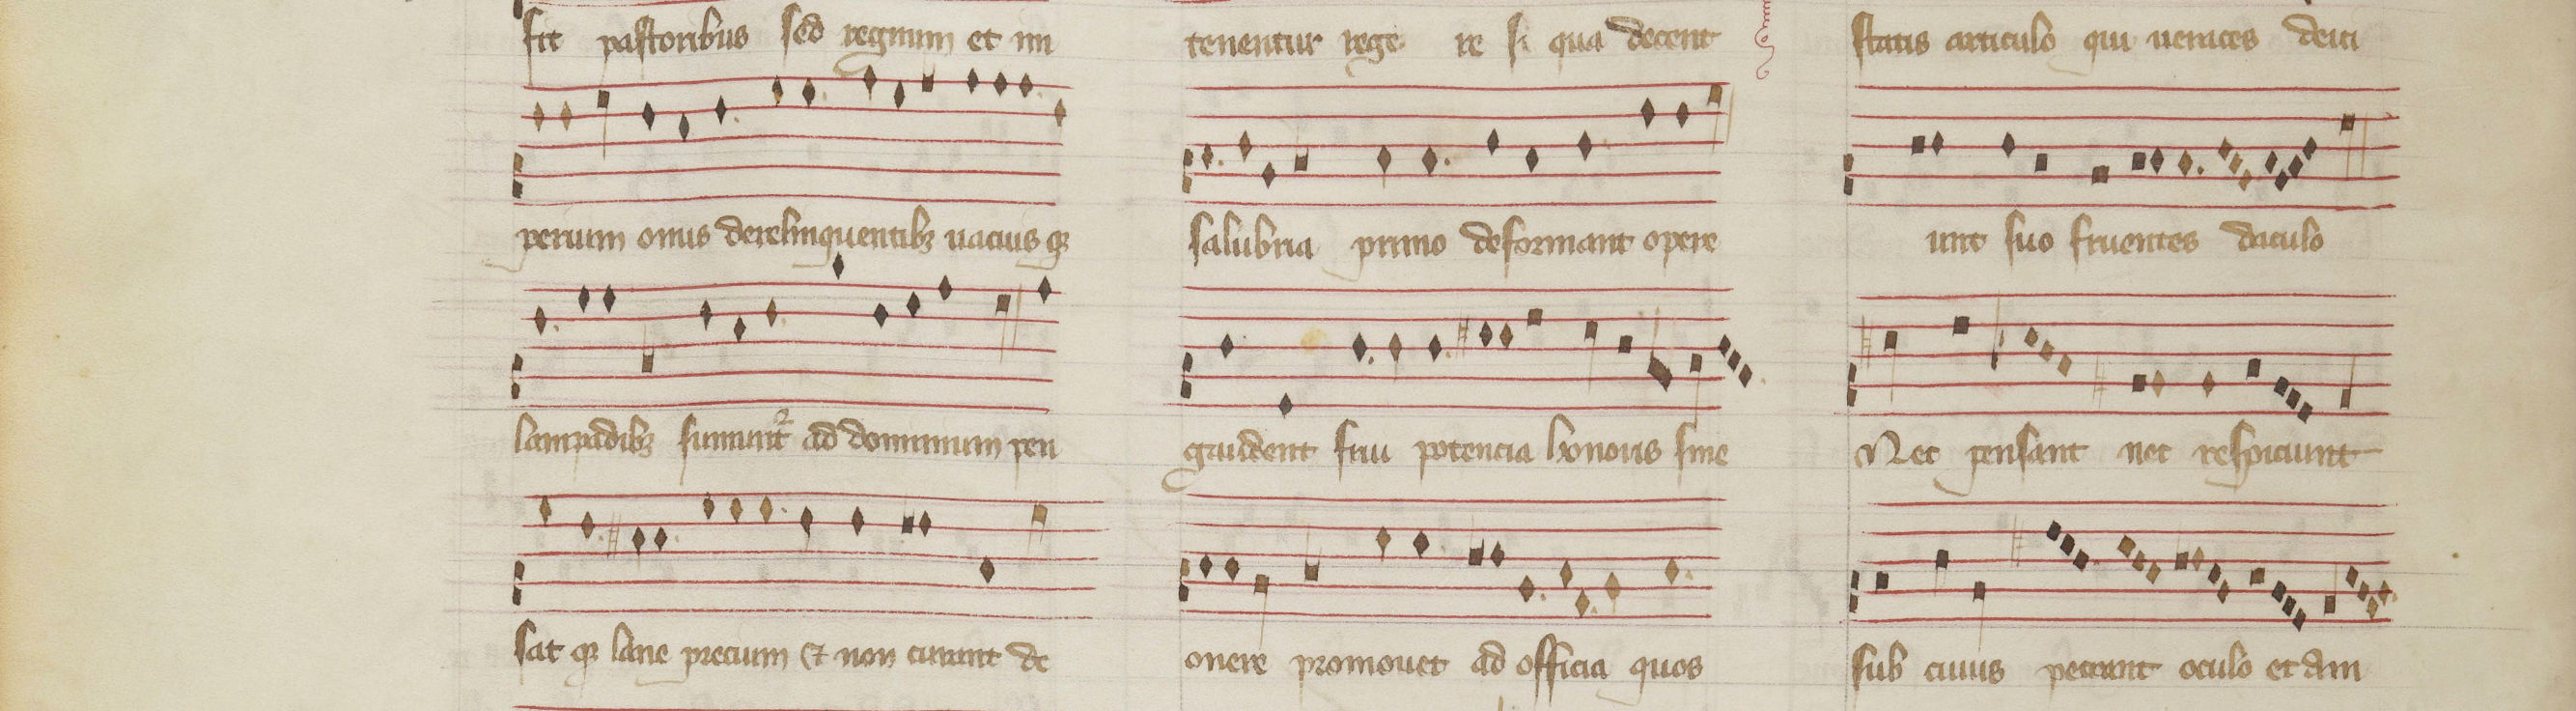 fit pastoribus sed regnum et im
perium onus derelinquentibꝫ vacuis qꝫ
lampadibꝫ sumunt ad dominum pen
sat qꝫ lane precium et non curant de
tenentur rege re si qua decent
salubria primo deformant opere
gaudent frui potencia honoris sine
onere promovet ad officia quos
statis articulo qui veraces deici
unt suo fruentes baculo
Nec pensant nec respiciunt
sub cuius peccant oculo et am